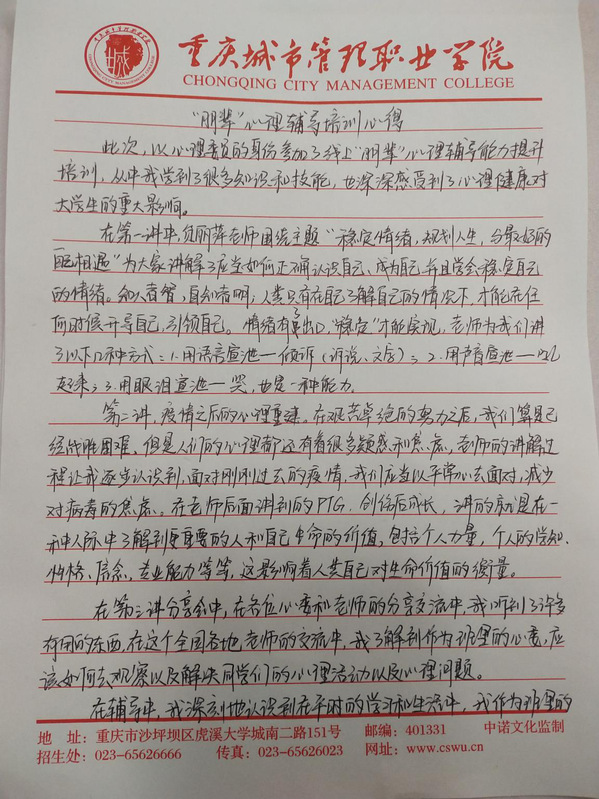 重庆城市管理职业学院
CHONGQING CITY MANAGEMENT COLLEGE
“朋辈”心理辅导培训心得
此次，以心理委员的身份参加了线上“朋辈”心理辅导能力提升
培训，从中我学到了很多知识和技能，也深深感受到了心理健康对
大学生的重大影响。
在第一讲中，贠丽萍老师围绕主题“稳定情绪，规划人生，与最好的
自己相遇”为大家讲解了应当如何正确认识自己，成为自己，并且学会稳定自己
的情绪。知人者智，自知者明，人类只有在自己了解自己的情况下，才能在任
何时候开导自己，引领自己。情绪有了出口，“稳定”才能实现，老师为我们讲
了以下几种方式：1.用语言宣泄—倾诉（诉说、文字）；2.用声音宣泄—吼
起来；3.用眼泪宣泄—哭，也是一种能力。
第二讲，疫情之后的心理重建。在艰苦卓绝的努力之后，我们算是已
经战胜困难，但是人们的心理都还有着很多疑惑和焦虑。老师的讲解过
程让我逐步认识到，面对刚刚过去的疫情，我们应当以平常心去面对，减少
对病毒的焦虑。在老师后面讲到的PTG，创伤后成长，讲的就是在一
种人际中了解到更重要的人和自己生命的价值，包含个人力量，个人的认知、
性格、信念、专业能力等等，这影响着人类自己对生命价值的衡量。
在第三讲分享会中，在各位心委和老师的分享交流中，我听到了许多
有用的东西，在这个全国各地老师的交流中，我了解到作为班里的心委，应
该如何去观察以及解决同学们的心理活动以及心理问题。
在辅导中，我深刻地认识到在平时的学习和生活中，我作为班里的
地 址：重庆市沙坪坝区虎溪大学城南二路151号 邮编：401331 中诺文化监制
招生处：023-65626666 传真：023-65626023 网址：www.cswu.cn